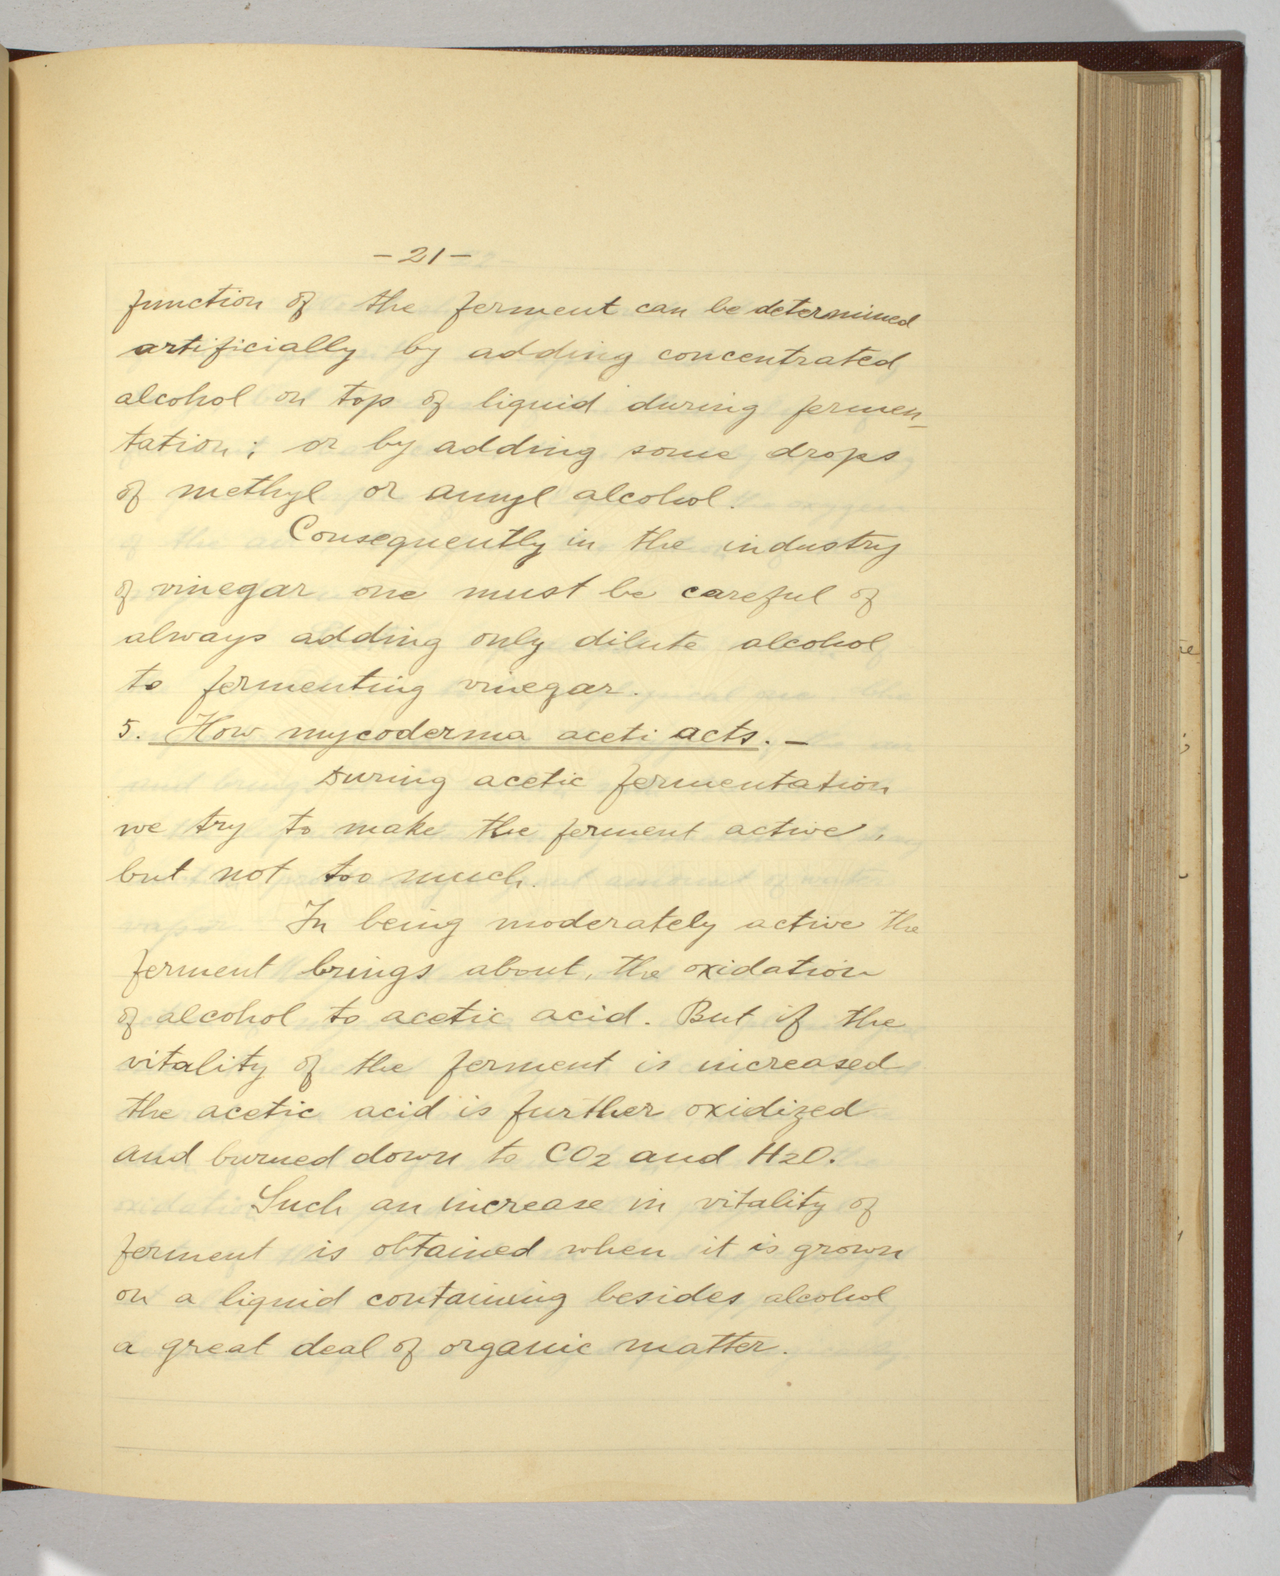 -21-
function of the ferment can be determined
artificially by adding concentrated
alcohol on top of liquid during fermen-
tation; or by adding some drops
of methyl or amyl alcohol.
Consequently in the industry
of vinegar one must be careful of
always adding only dilute alcohol
to fermenting vinegar.
5. How mycoderma aceti acts. -
During acetic fermentation
we try to make the ferment active,
but not too much.
In being moderately active the
ferment brings about, the oxidation
of alcohol to acetic acid. But if the
vitality of the ferment is increased
the acetic acid is further oxidized
and burned down to CO2 and H2O.
Such an increase in vitality of
ferment is obtained when it is grown
on a liquid containing besides alcohol
a great deal of organic matter.